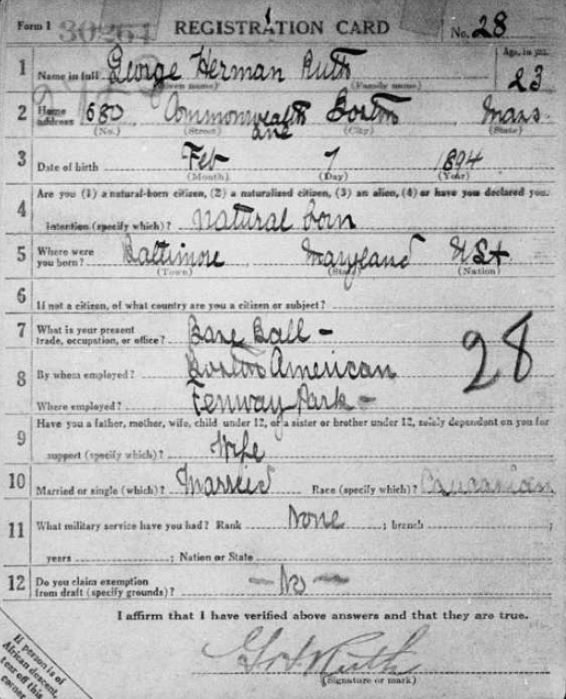 Form 1 30261 REGISTRATION CARD No. 28
1 Name in full George Herman Ruth Age, in yrs. 23
(Given name) (Family name)
2 Home address 680 Commonwealth ave Boston Mass.
(No.) (Street) (City) (State)
3 Date of birth Feb 7 1894
(Month) (Day) (Year)
4 Are you (1) a natural-born citizen, (2) a naturalized citizen, (3) an alien, (4) or have you declared your
intention (specify which)? natural born
5 Where were you born? Baltimore Maryland USA
(Town) (State) (Nation)
6 If not a citizen, of what country are you a citizen or subject?
7 What is your present trade, occupation, or office? Base Ball -
8 By whom employed? Boston American
Where employed? Fenway Park -
28
9 Have you a father, mother, wife, child under 12, or a sister or brother under 12, solely dependent on you for
support (specify which)? Wife
10 Married or single (which)? Married Race (specify which)? Caucasian
11 What military service have you had? Rank None ; branch ;
years ; Nation or State
12 Do you claim exemption from draft (specify grounds)? - No -
I affirm that I have verified above answers and that they are true.
G H Ruth
(Signature or mark)
If person is of
African descent,
tear off this
corner